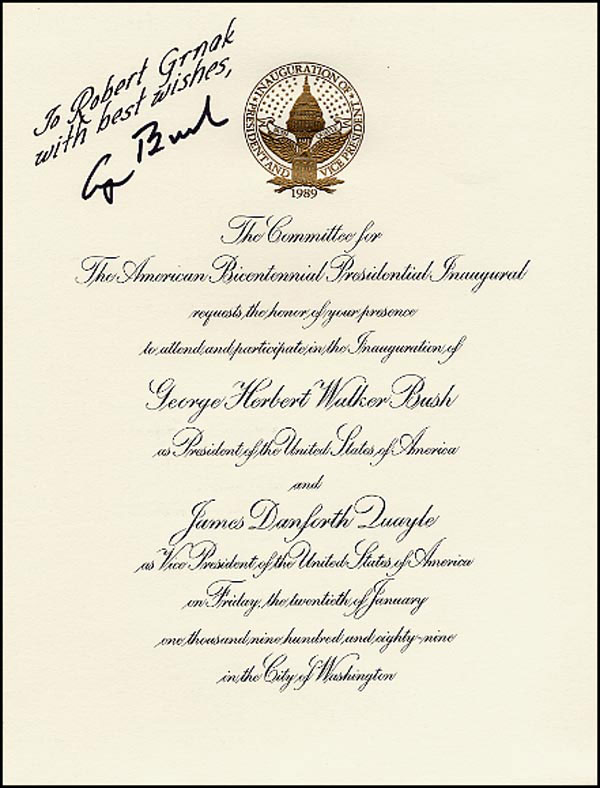 To Robert Grnak
with best wishes,
G Bush
INAUGURATION OF
PRESIDENT AND VICE PRESIDENT
1989
The Committee for
The American Bicentennial Presidential Inaugural
requests the honor of your presence
to attend and participate in the Inauguration of
George Herbert Walker Bush
as President of the United States of America
and
James Danforth Quayle
as Vice President of the United States of America
on Friday, the twentieth of January
one thousand nine hundred and eighty-nine
in the City of Washington